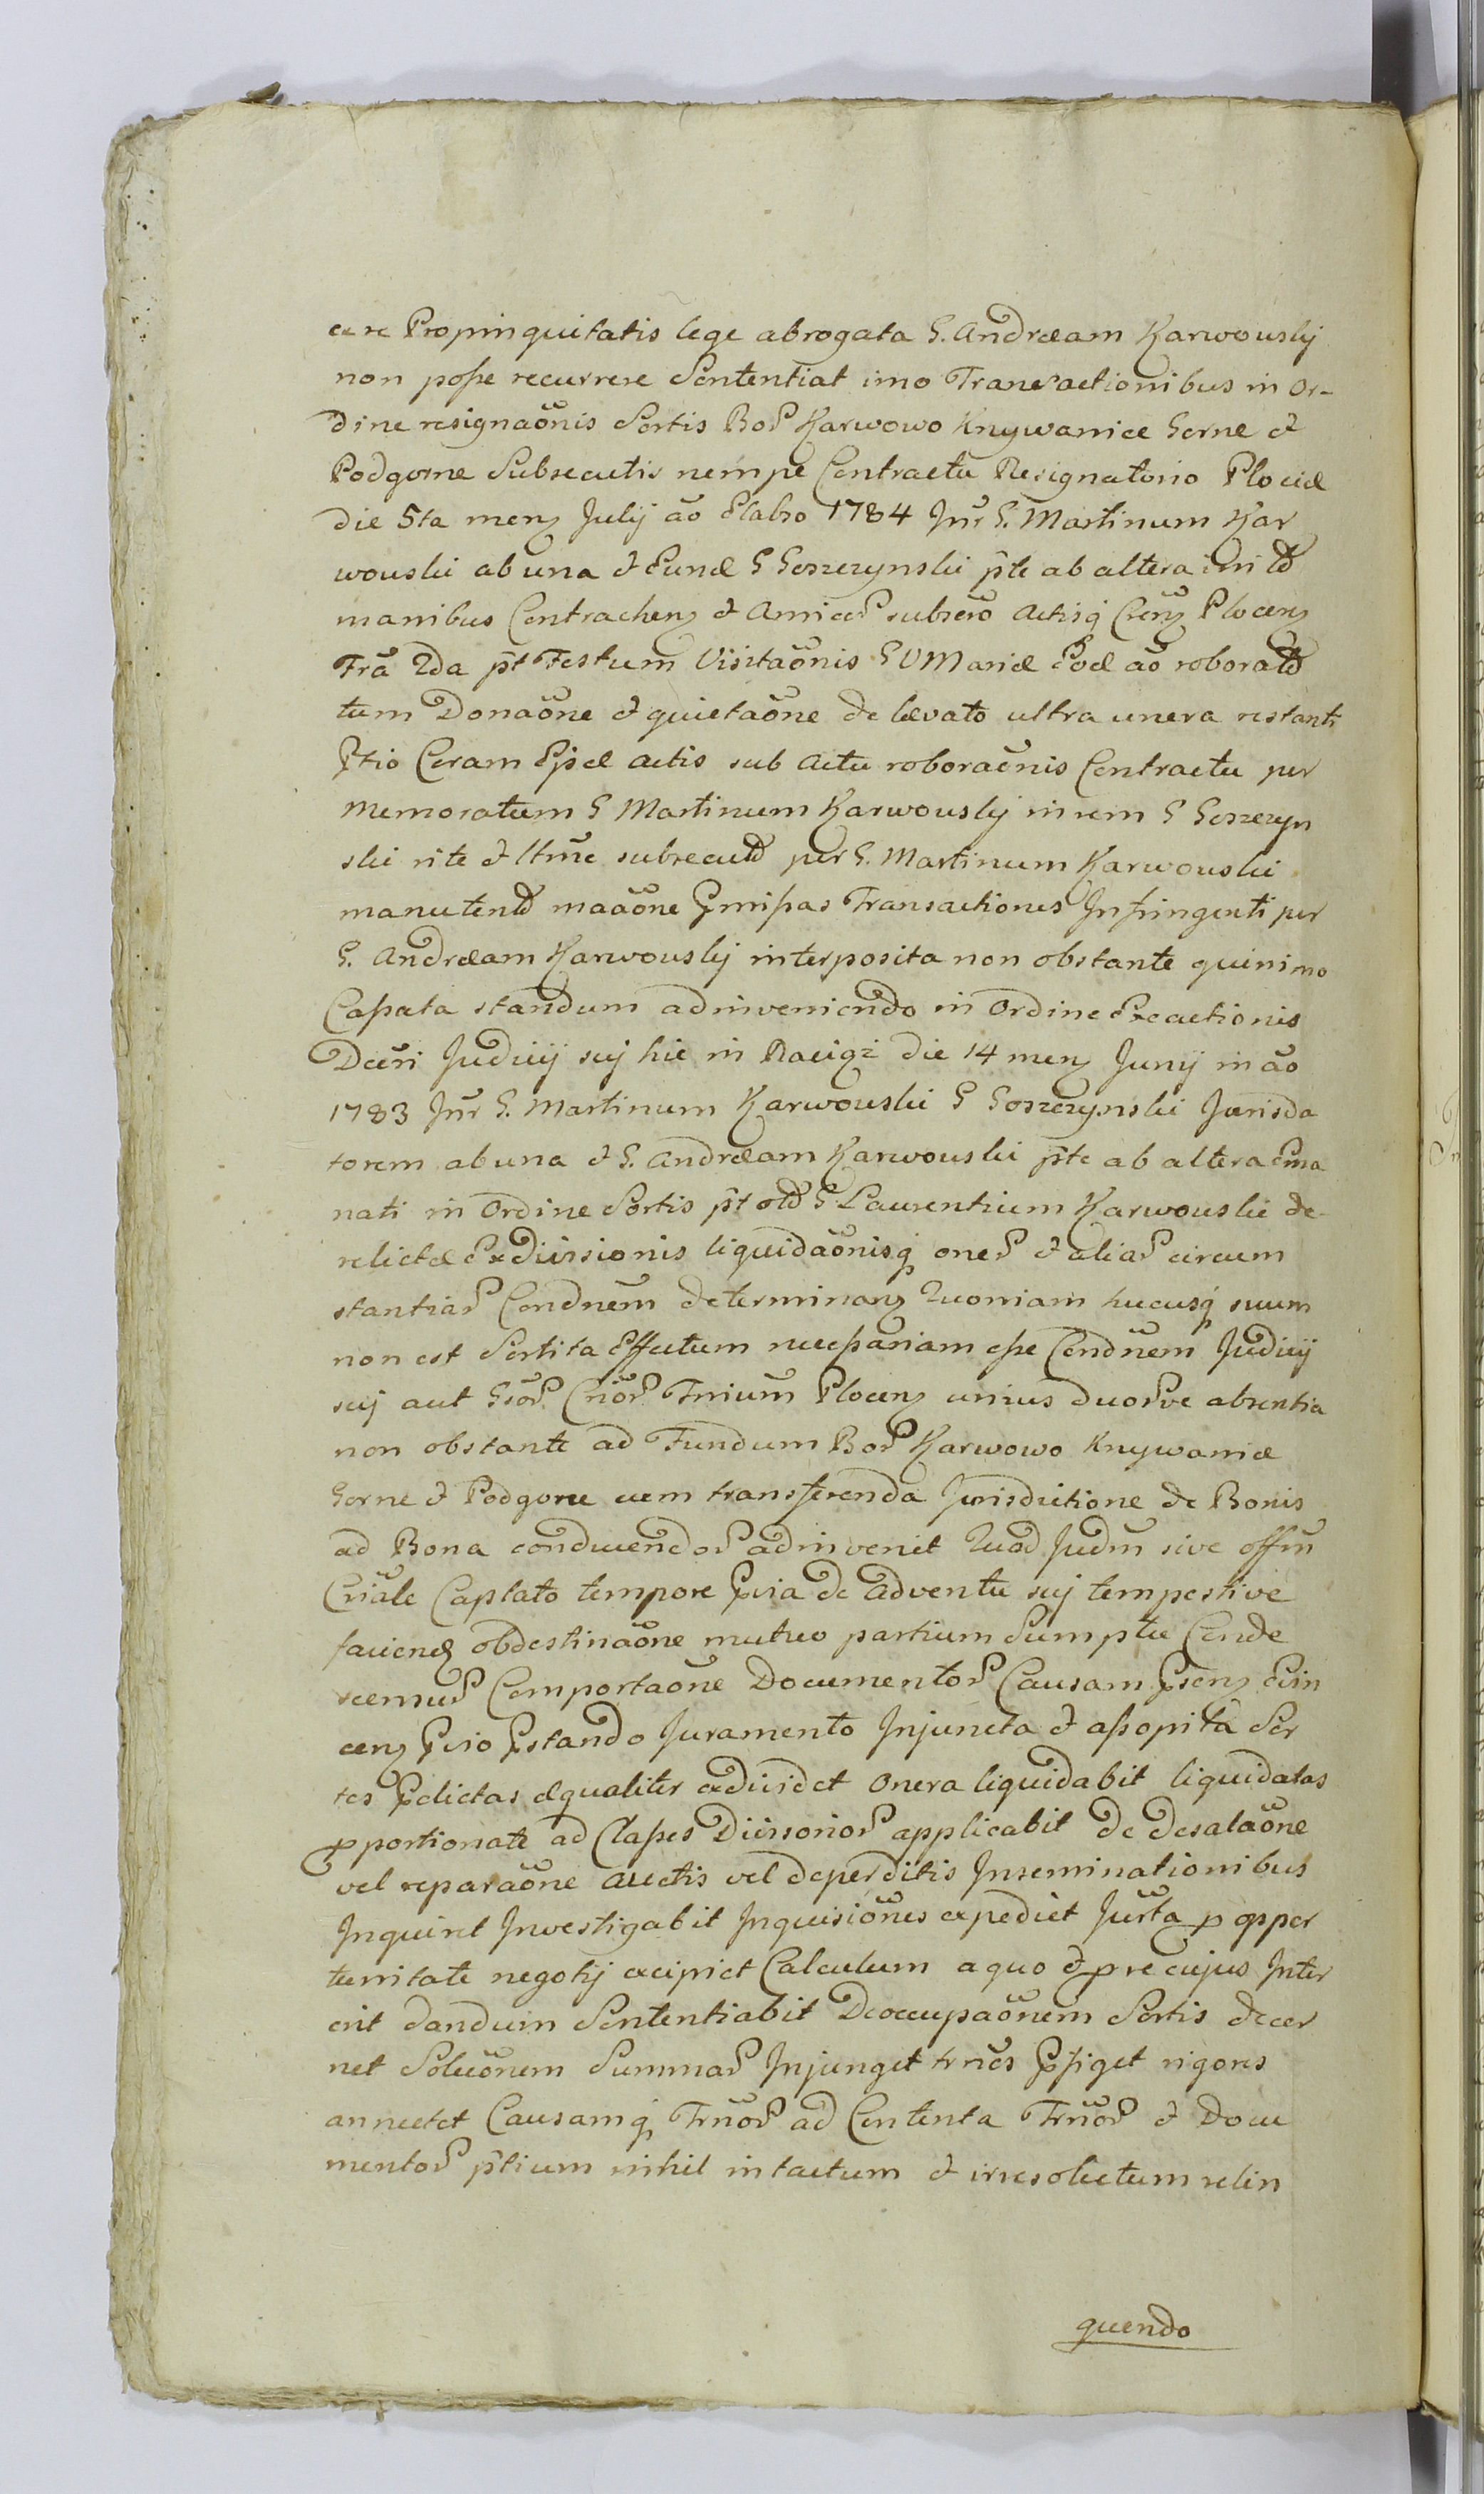 cere Propinquitatis lege abrogata G. Andræam Karwouskj
non posse recurrere Sententiat imo Transactionibus in Or-
dine resignaõnis Sortis Bor̃ Karwowo Knywanice Gorne et
Podgorne Subsecutis nempe Contractu Resignatorio Plociæ
die 5ta menß Julij ão Elabso 1784 Inr̃ G. Martinum Kar
wouski ab una et Eund G Goszczynski p̃te ab altera inițd
manibus Contrahenß et Amicor̃ subscr̃o Actisq̃ Cren̄ß Plocenß
Frã 2da p̃t Festum Visitaõnis G V Mariæ Eod ão roboratd
tum Donaõne et quietaõne de lævato ultra unera restanti
p̃tio Coram Ejsd actis sub Actu roboraõnis Contractu per
memoratum G Martinum Karwouskj in rem G Goszczyn
ski rite et lltm̃e subsecutd per G. Martinum Karwouski
manutentd mãaõne p̃missas Transactiones Infringenti per
G. Andræam Karwouskj interposita non obstante quinimo
Cassata standum adinveniendo in Ordine Exactionis
Decr̃i Judicij sui hic in Raciąż die 14 menß Junij in ão
1783 Inr̃ G. Martinum Karwouski G Goszczynski Jurisda
torem ab una et G. Andræam Karwouski p̃te ab altera Ema
nati in Ordine Sortis p̃t old G. Laurentium Karwouski de-
relictæ Exdivisionis liquidaõnisq̃ oner̃ et aliar̃ circum
stantiar̃ Condñem determinanß Quoniam hucusq̃ suum
non est Sortita Effectum necessariam esse Condñem Judicij
sui aut Gsor̃ Crior̃ Trium̃ Plocenß unius duor̃ve absentia
non obstante ad Fundum Bor̃ Karwowo Knywanice
Gorne et Podgorne cum transferenda Jurisdictione de Bonis
ad Bona conducendor̃ adinvenit Quod Judm̃ sive offm̃
Criãle Captato tempore p̃via de Adventu sui tempestive
faciend obdestinaõne mutuo partium Sumptu Conde
scensur̃ Comportaõne Documentor̃ Causam p̃senß Evin
cenß p̃vio p̃standо Juramento Injuncta et assopita Sor
tes p̃dictas æqualiter exdividet Onera liquidabit liquidatas
p̱portionate ad Classes Divisorior̃ applicabit De desalaõne
vel reparaõne auctis vel deperditis Inseminationibus
Inquiret Investigabit Inquisiões expediet Jurta p̱ oppor
tunitate negotij excipiet Calculum a quo et p̱ re cujus Inter
erit dandum Sententiabit Deoccupaõnem Sortis decer
net Soluõnem Summar̃ Injunget trm̃os p̃figet rigores
annectet Causamq̃ Trm̃or̃ ad Contenta Trm̃or̃ et Docu
mentor̃ p̃tium nihil intactum et irresolutum relin
quendo